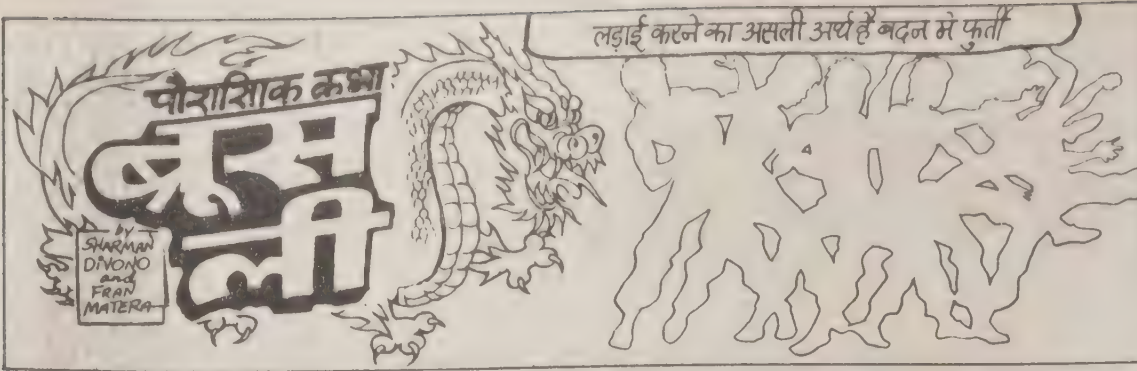 पौरासिाक कथा
ब्रूस
ली
by
SHARMAN
DIVONO
and
FRAN
MATERA
लड़ाई करने का असली अर्थ है बदन मे फुर्ती